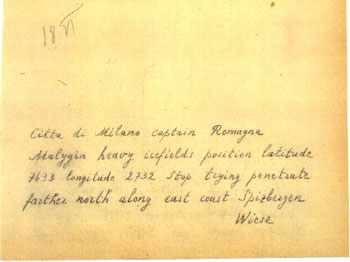 18 VI
Citta di Milano captain Romagna
Malygin heavy icefields position latitude
7633 longitude 2732 Stop trying penetrate
farther north along east coast Spizbergen
Wiese